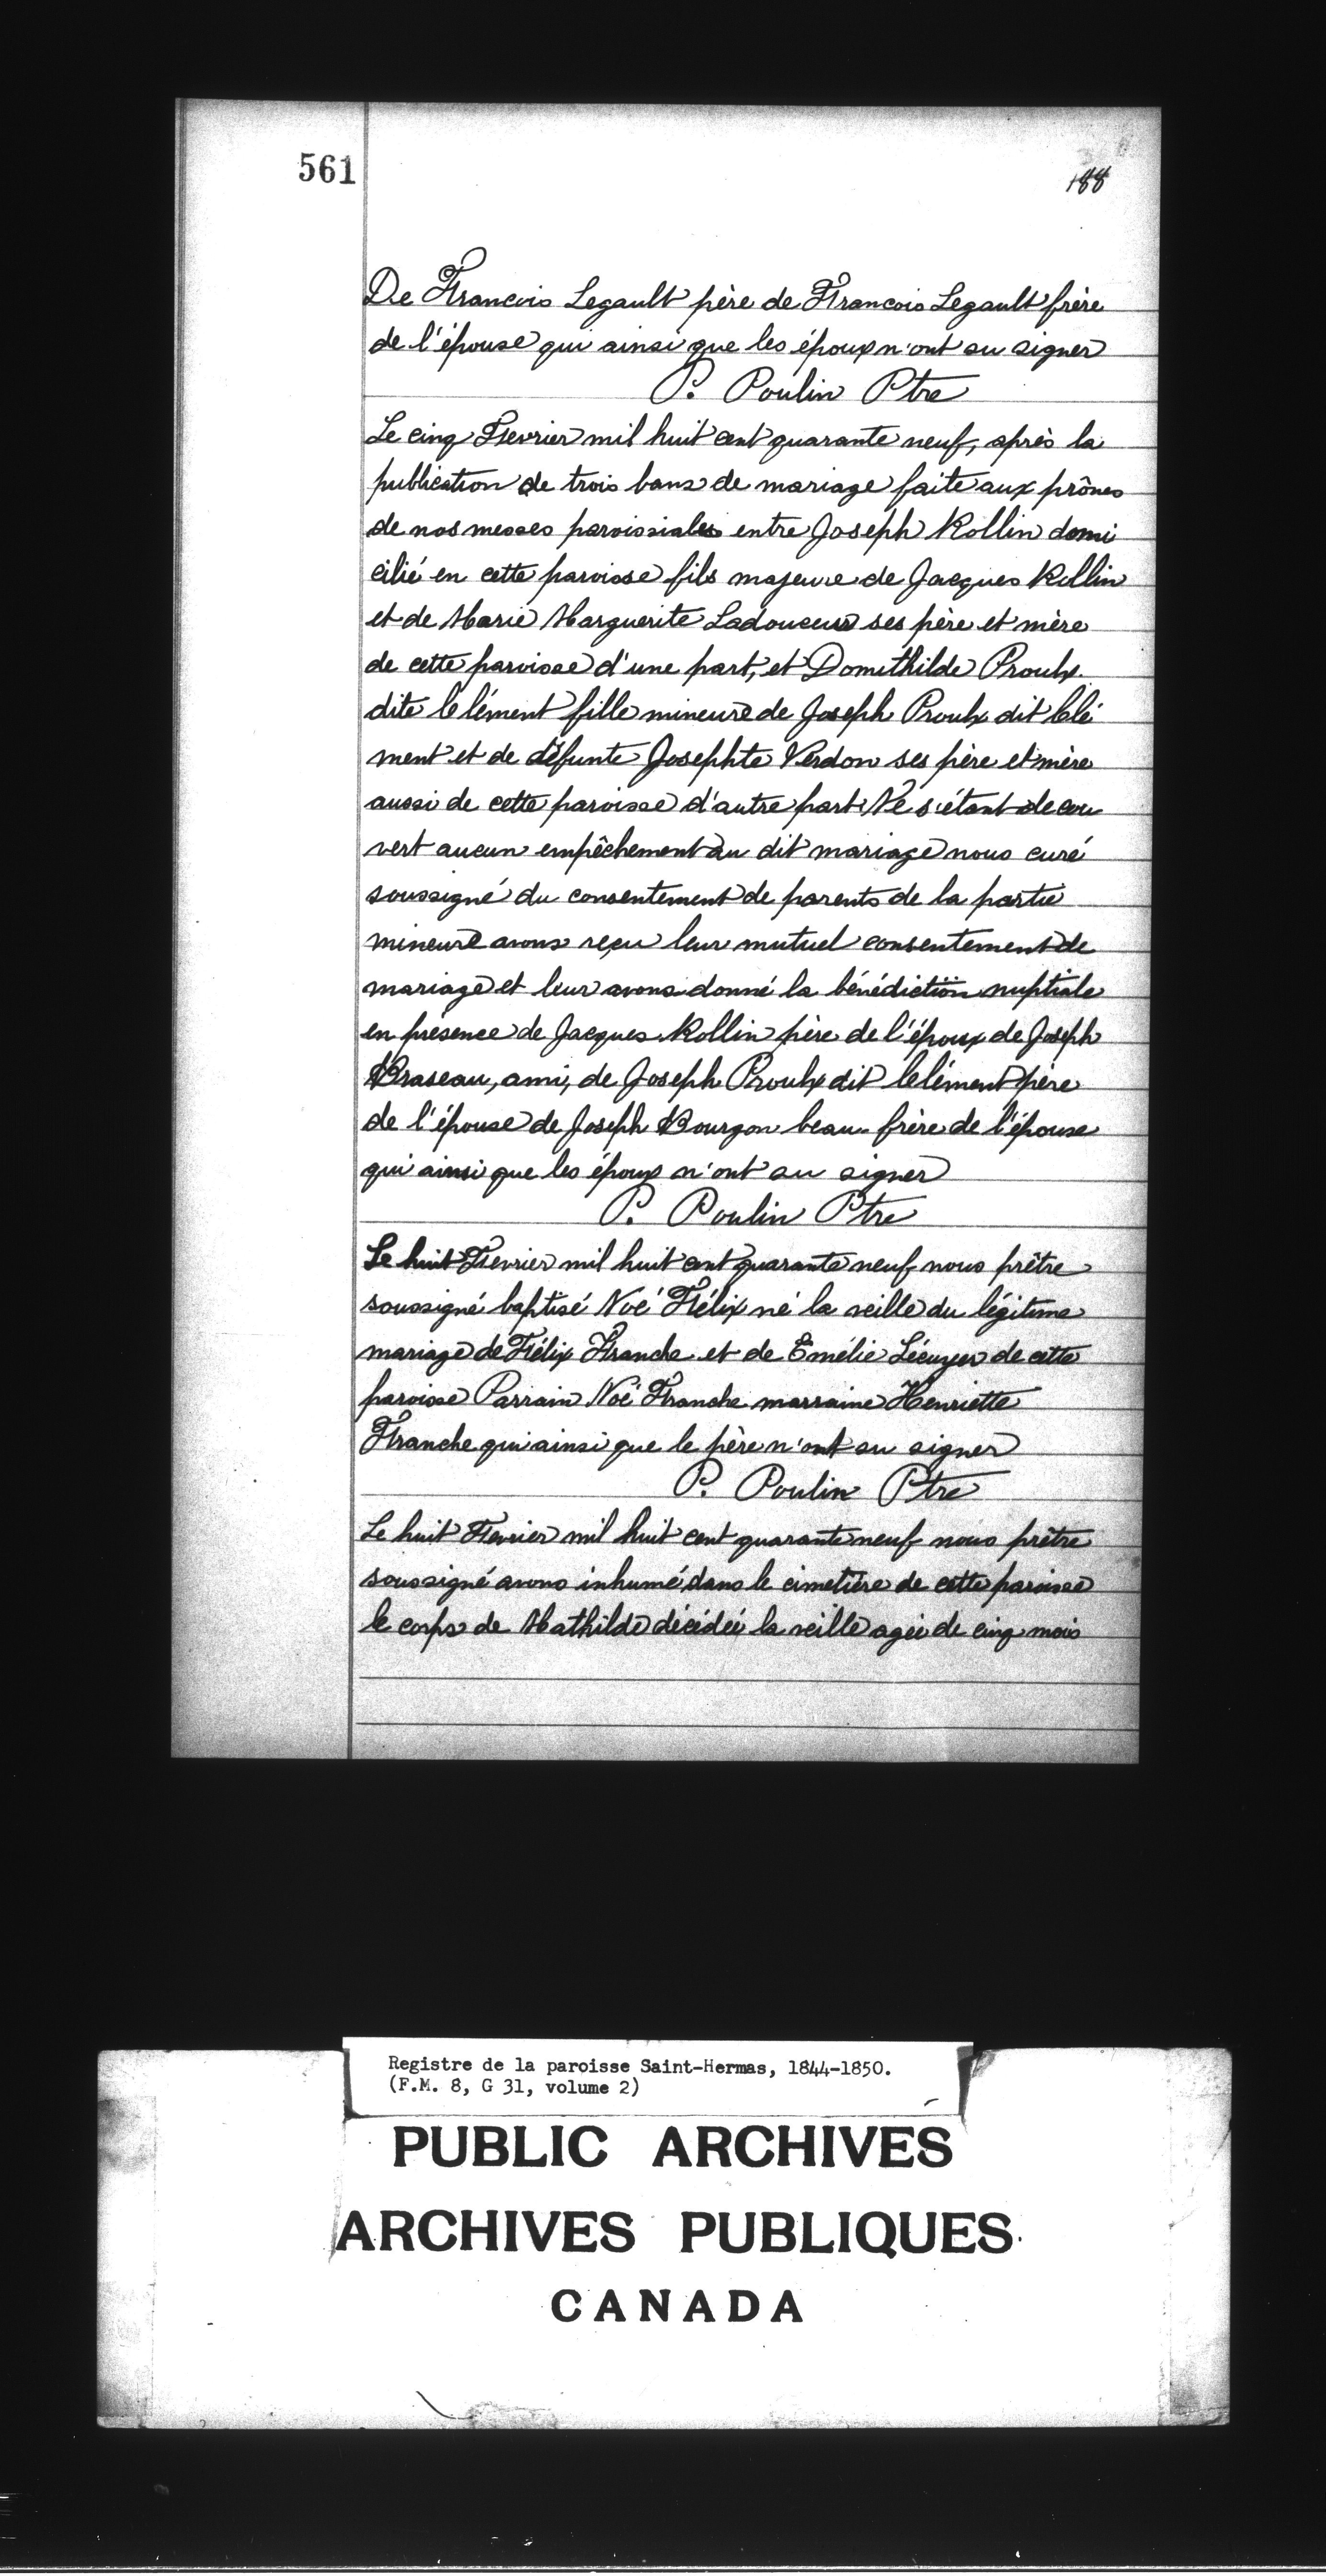 561
188
De Francois Legault père de Francois Legault frère
de l'épouse qui ainsi que les époux n'ont su signer
P. Poulin Ptre
Le cinq Fevrier mil huit cent quarante neuf, après la
publication de trois bans de mariage faite aux prônes
de nos messes paroissiales entre Joseph Rollin domi
cilié en cette paroisse fils majeure de Jacques Rollin
et de Marie Marguerite Ladouceur ses père et mère
de cette paroisse d'une part, et Domithilde Proulx
dite Clément fille mineure de Joseph Proulx dit Clé
ment et de défunte Josephte Verdon ses père et mère
aussi de cette paroisse d'autre part. Ne s'étant decou
vert aucun empêchement au dit mariage nous curé
soussigné du consentement de parents de la partie
mineure avons reçu leur mutuel consentement de
mariage et leur avons donné la bénédiction nuptiale
en présence de Jacques Rollin père de l'époux de Joseph
Braseau, ami, de Joseph Proulx dit Clément père
de l'épouse de Joseph Bourgon beau-frère de l'épouse
qui ainsi que les époux n'ont su signer
P. Poulin Ptre
Le huit Fevrier mil huit cent quarante neuf nous prêtre
soussigné baptisé Noé Félix né la veille du légitime
mariage de Félix Franche et de Emélie Lécuyer de cette
paroisse Parrain Noé Franche marraine Henriette
Franche qui ainsi que le père n'ont su signer
P. Poulin Ptre
Le huit Fevrier mil huit cent quarante neuf nous prêtre
soussigné avons inhumé dans le cimetière de cette paroisse
le corps de Mathilde décédée la veille agée de cinq mois
Registre de la paroisse Saint-Hermas, 1844-1850.
(F.M. 8, G 31, volume 2)
PUBLIC ARCHIVES
ARCHIVES PUBLIQUES
CANADA